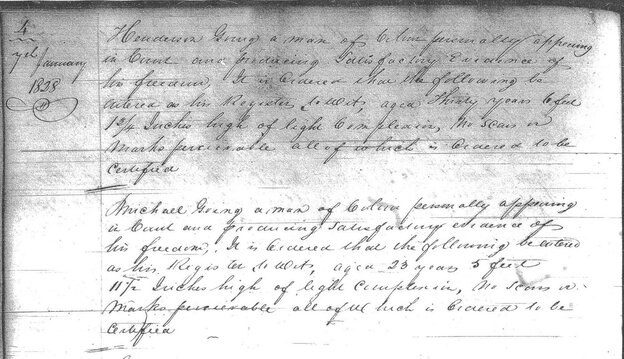 4
7th January
1828
Henderson Going a man of Colour personally appearing
in Court and producing Satisfactory Evidence of
his freedom, It is Ordered that the following be
entered as his Register to Wit, aged Thirty years 6 feet
1 3/4 Inches high of light Complexion, No Scars or
Marks perceivable all of which is Ordered to be
Certified
Michael Going a man of Colour personally appearing
in Court and producing satisfactory evidence of
his freedom, It is Ordered that the following be entered
as his Register to Wit, aged 23 years 5 feet
11 1/2 Inches high of light Complexion, No Scars or
Marks perceivable all of Which is Ordered to be
Certified